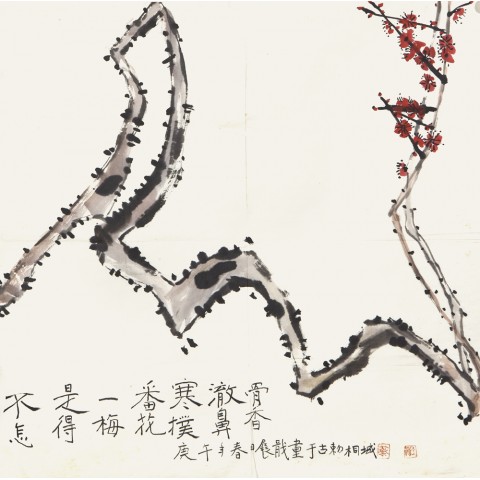 不是一番寒澈骨
怎得梅花撲鼻香
庚午年春日晨戲畫于古刺桐城